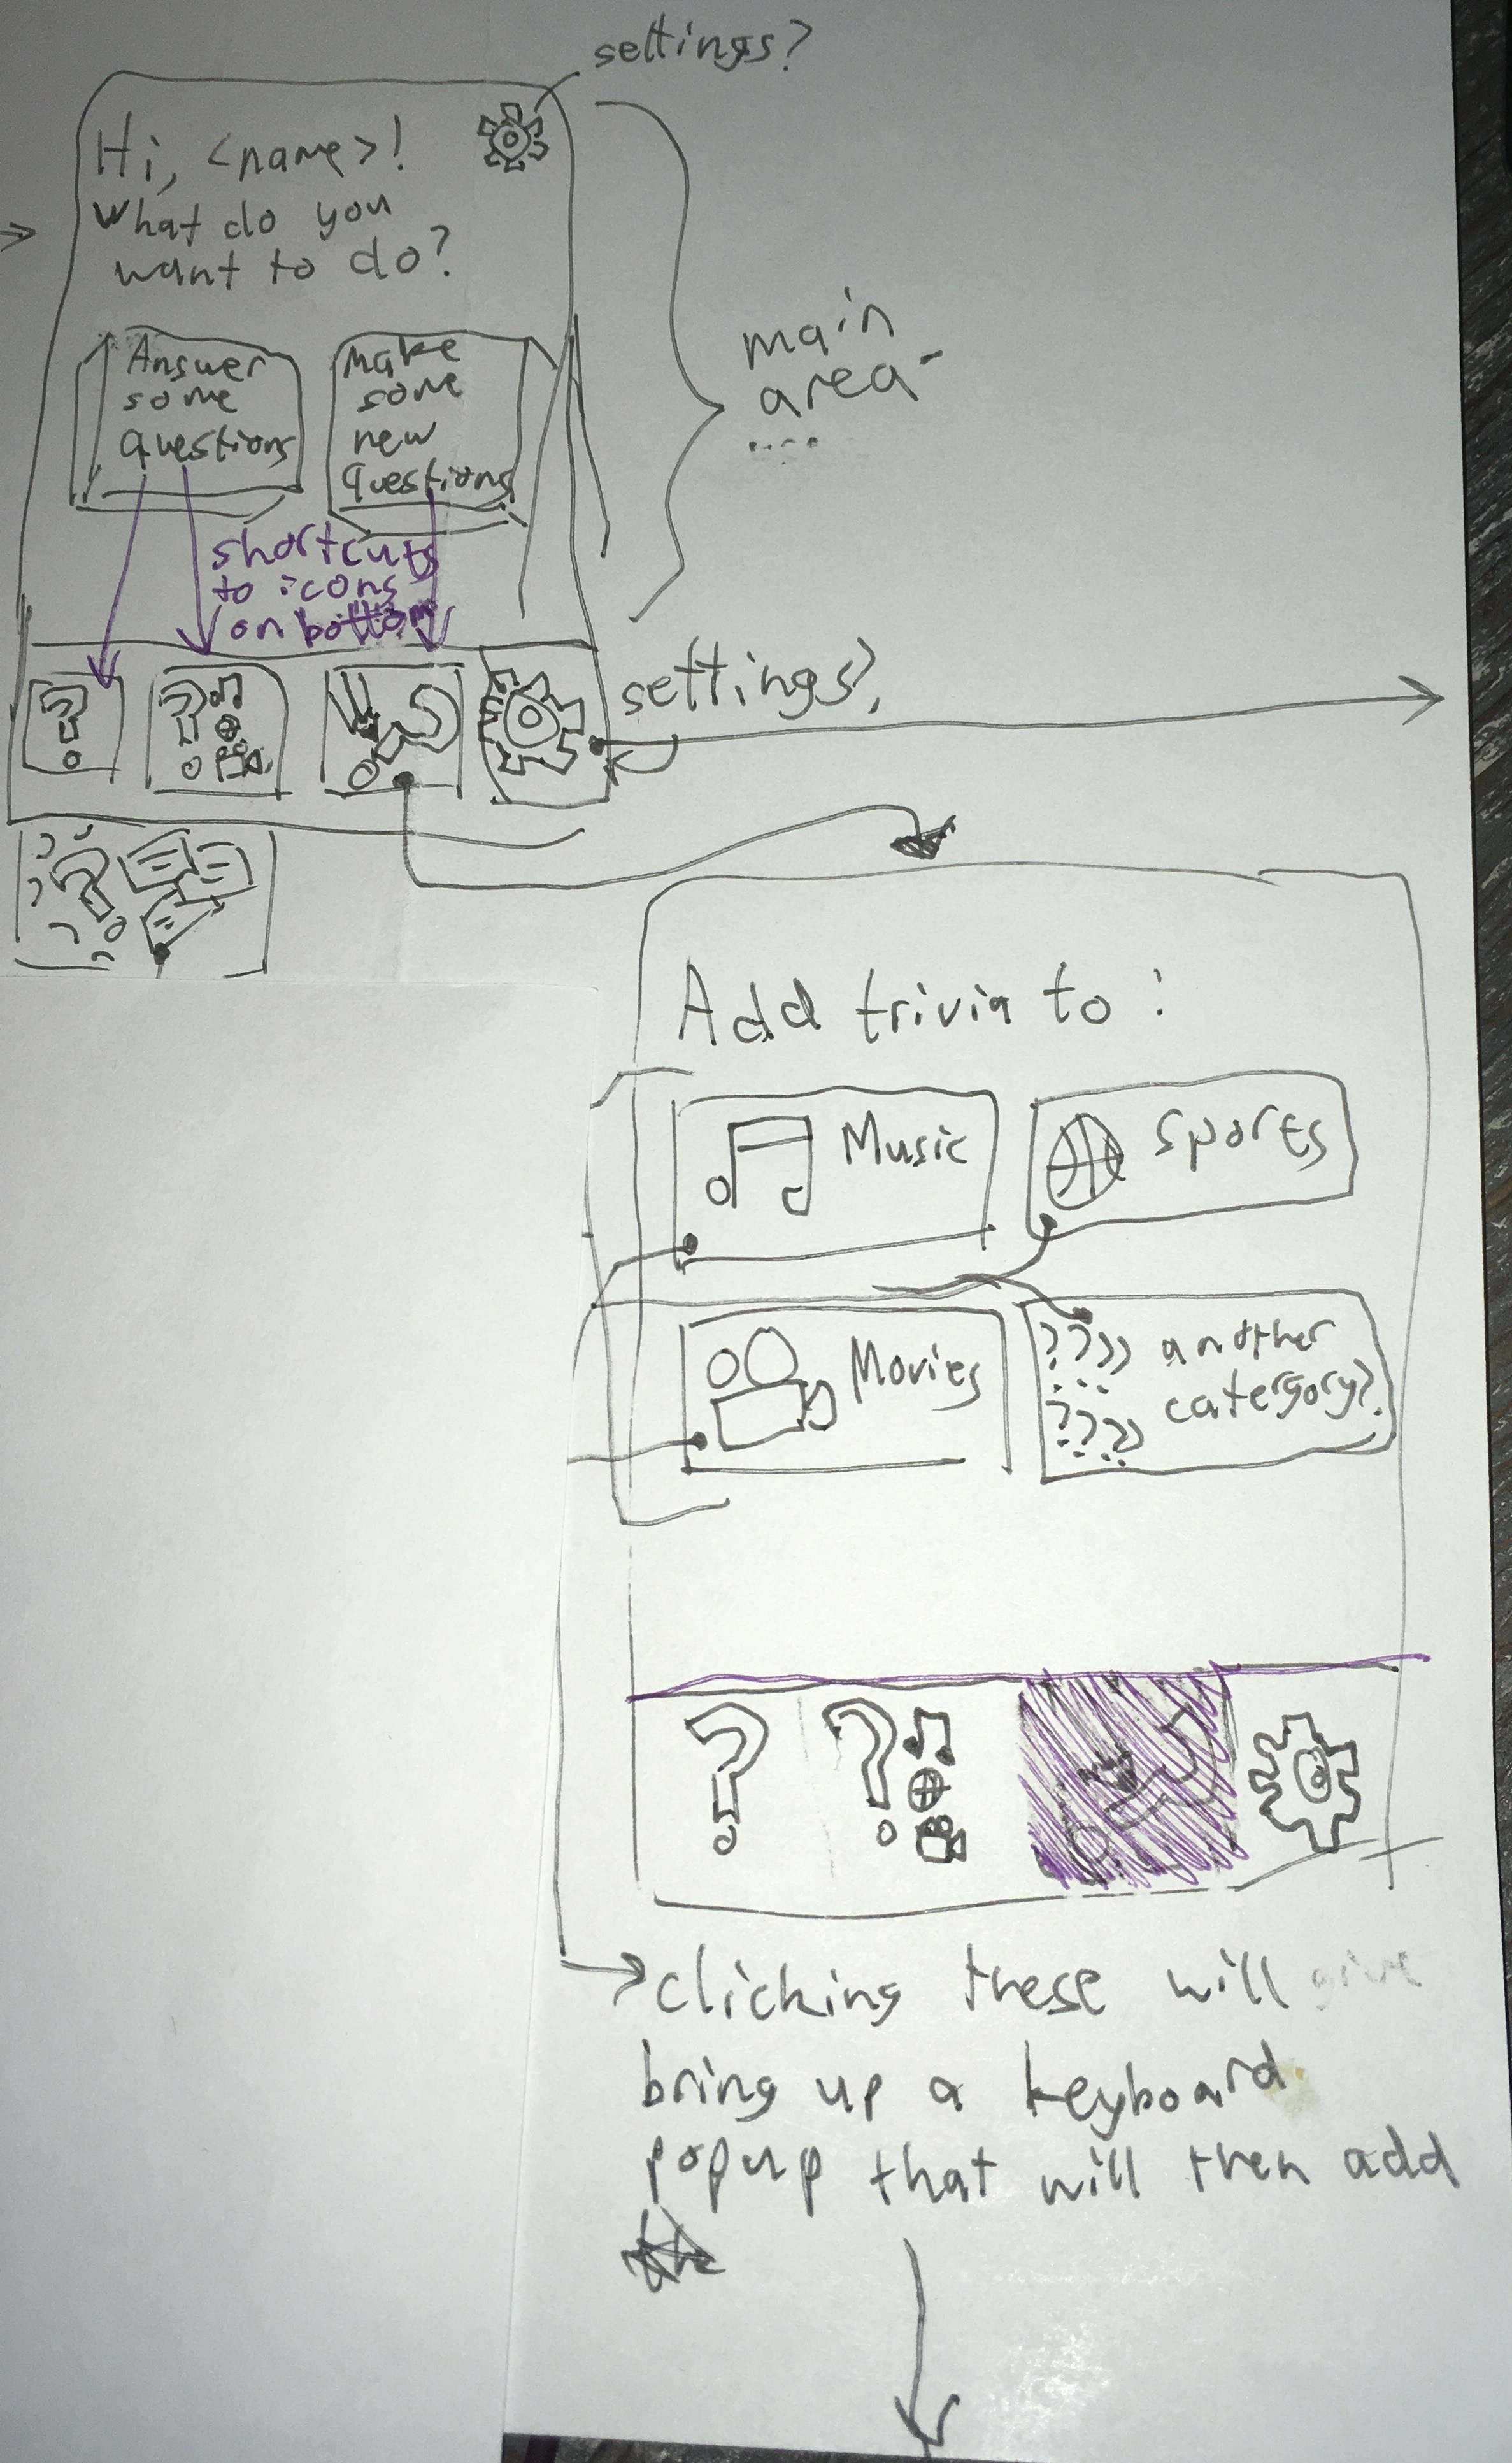 settings?
Hi, <name>!
What do you
want to do?
Answer
some
questions
Make
some
new
questions
main
area
shortcuts
to icons
on bottom
settings?
Add trivia to:
Music
Sports
Movies
???? another
???? catergory?
clicking these will give
bring up a keyboard
popup that will then add